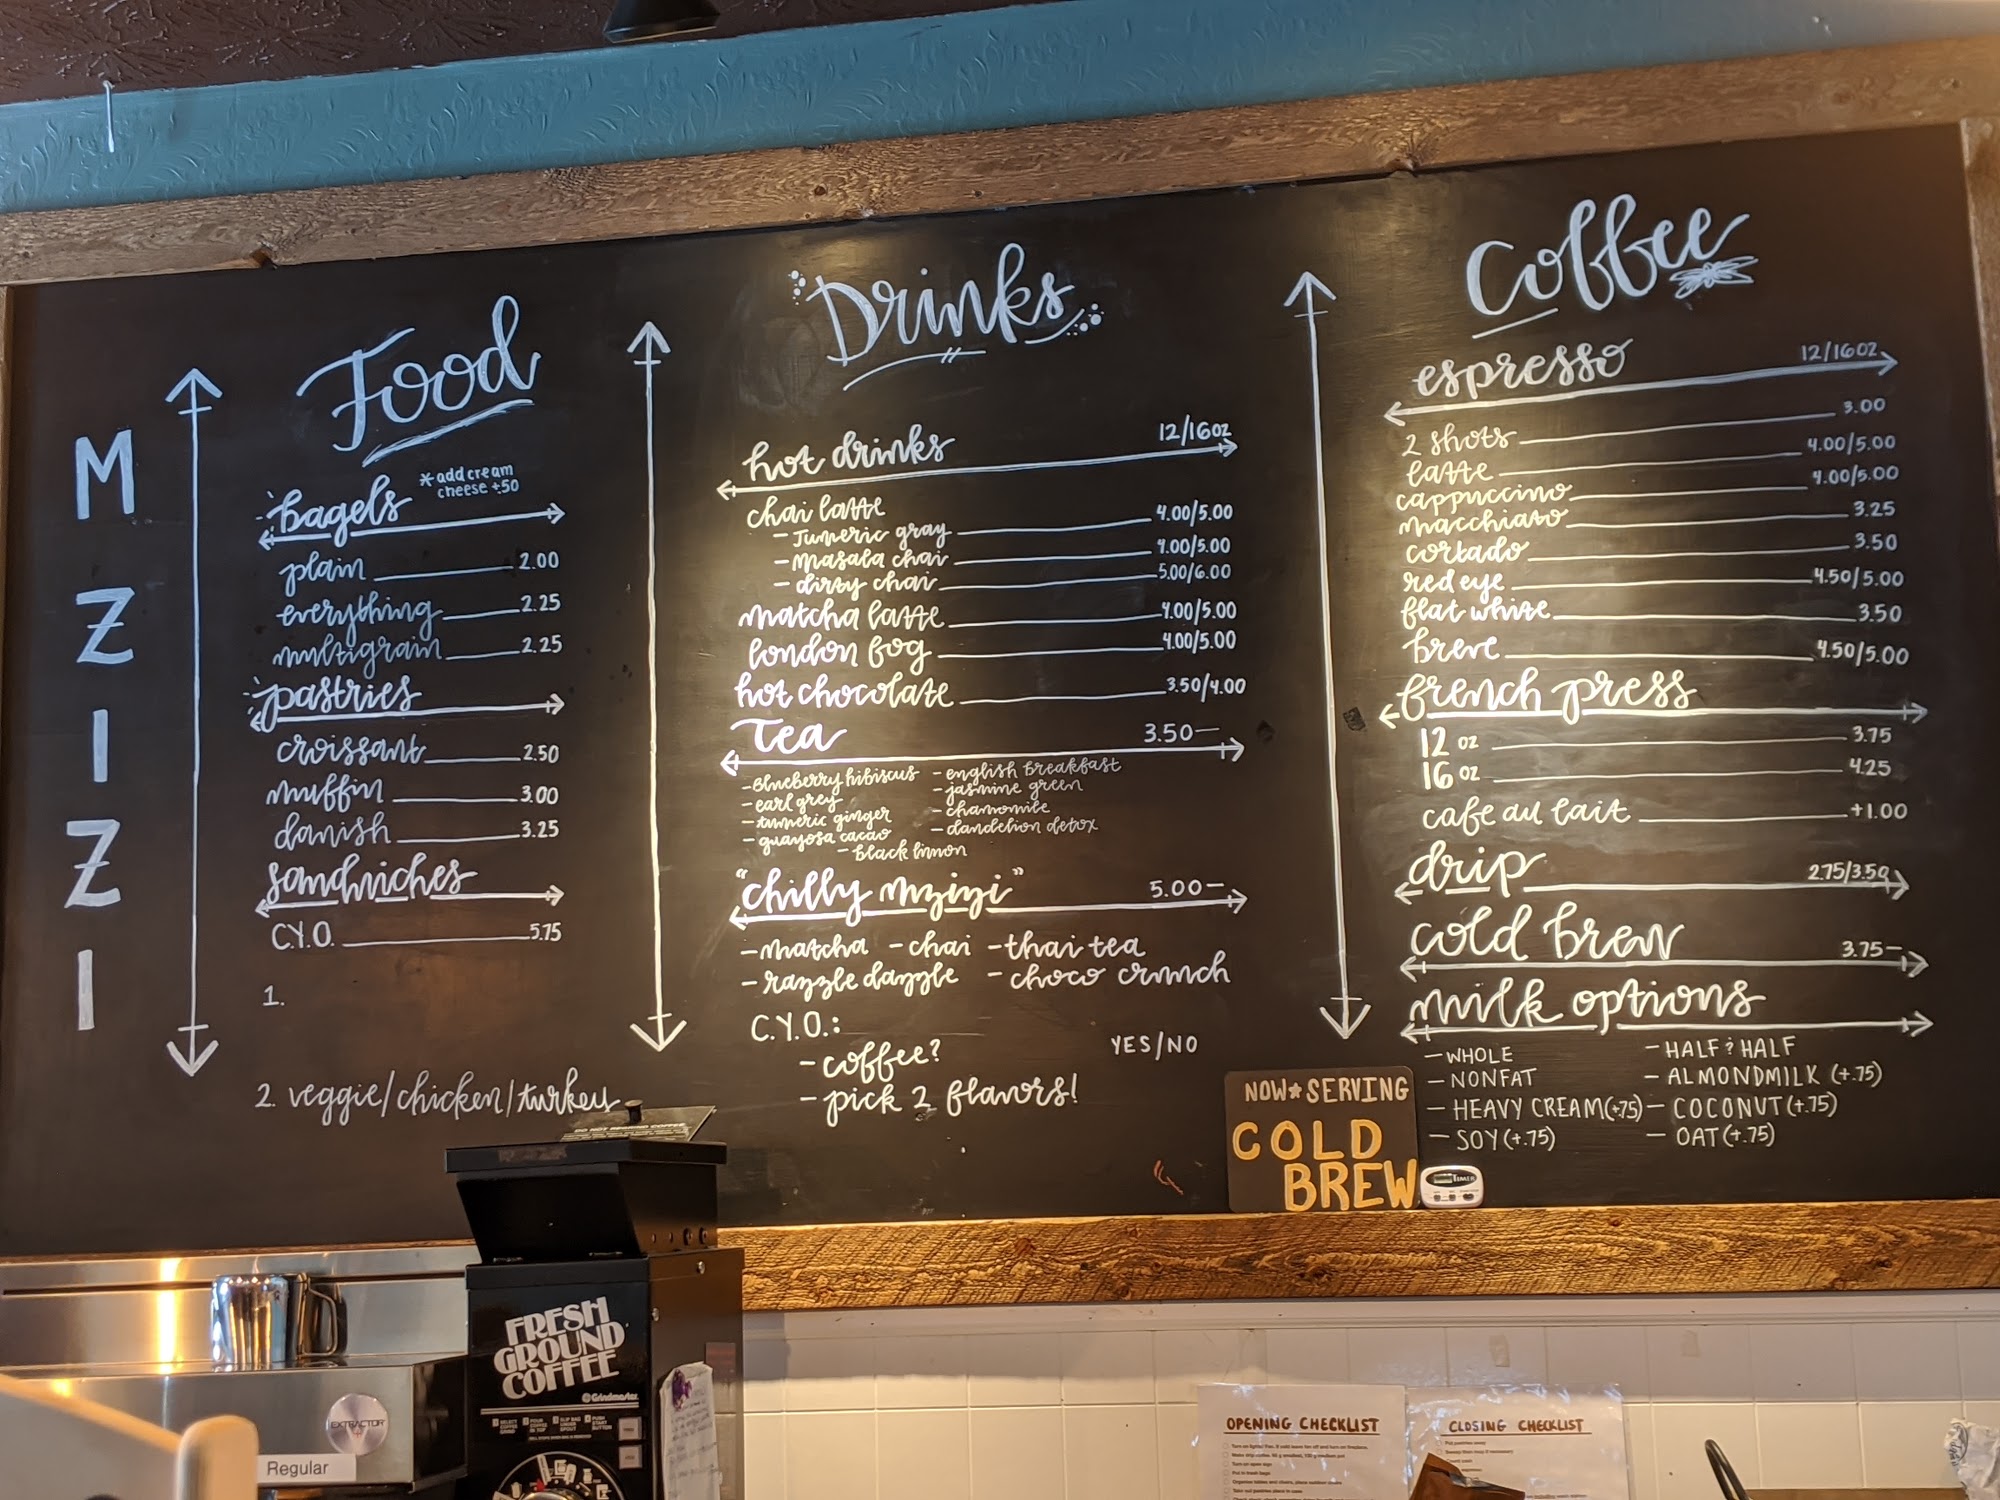 MZIZI
Food
bagels
*add cream
cheese +.50
plain 2.00
everything 2.25
multigrain 2.25
pastries
croissant 2.50
muffin 3.00
danish 3.25
sandwiches
C.Y.O. 5.75
1.
2. veggie/chicken/turkey
Drinks
hot drinks 12/16oz
chai latte
- Tumeric gray 4.00/5.00
- Masala chai 4.00/5.00
- dirty chai 5.00/6.00
matcha latte 4.00/5.00
london fog 4.00/5.00
hot chocolate 3.50/4.00
Tea 3.50-
- Blueberry hibiscus
- earl grey
- tumeric ginger
- guayosa cacao
- english breakfast
- jasmine green
- chamomile
- dandelion detox
- black limon
"chilly mzizi" 5.00-
- matcha - chai - thai tea
- razzle dazzle - choco crunch
C.Y.O.:
- coffee? YES/NO
- pick 2 flavors!
Coffee
espresso 12/16oz
2 shots 3.00
latte 4.00/5.00
cappuccino 4.00/5.00
macchiato 3.25
cortado 3.50
red eye 4.50/5.00
flat white 3.50
breve 4.50/5.00
french press
12 oz 3.75
16 oz 4.25
cafe au lait +1.00
drip 2.75/3.50
cold brew 3.75-
milk options
- WHOLE
- NONFAT
- HEAVY CREAM (+.75)
- SOY (+.75)
- HALF & HALF
- ALMONDMILK (+.75)
- COCONUT (+.75)
- OAT (+.75)
NOW * SERVING
COLD
BREW
TIMER
FRESH
GROUND
COFFEE
Grindmaster
EXTRACTOR
Regular
OPENING CHECKLIST
CLOSING CHECKLIST